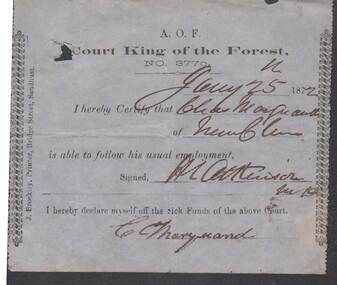 A. O. F.
Court King of the Forest,
NO. 3770.
Jany 25th 1872
I hereby Certify that Chas Marquand
of
is able to follow his usual employment,
Signed, H L Atkinson
I hereby declare myself off the Sick Funds of the above Court.
C Marquand
J. Brockley, Printer, Bridge Street, Sandhurst.